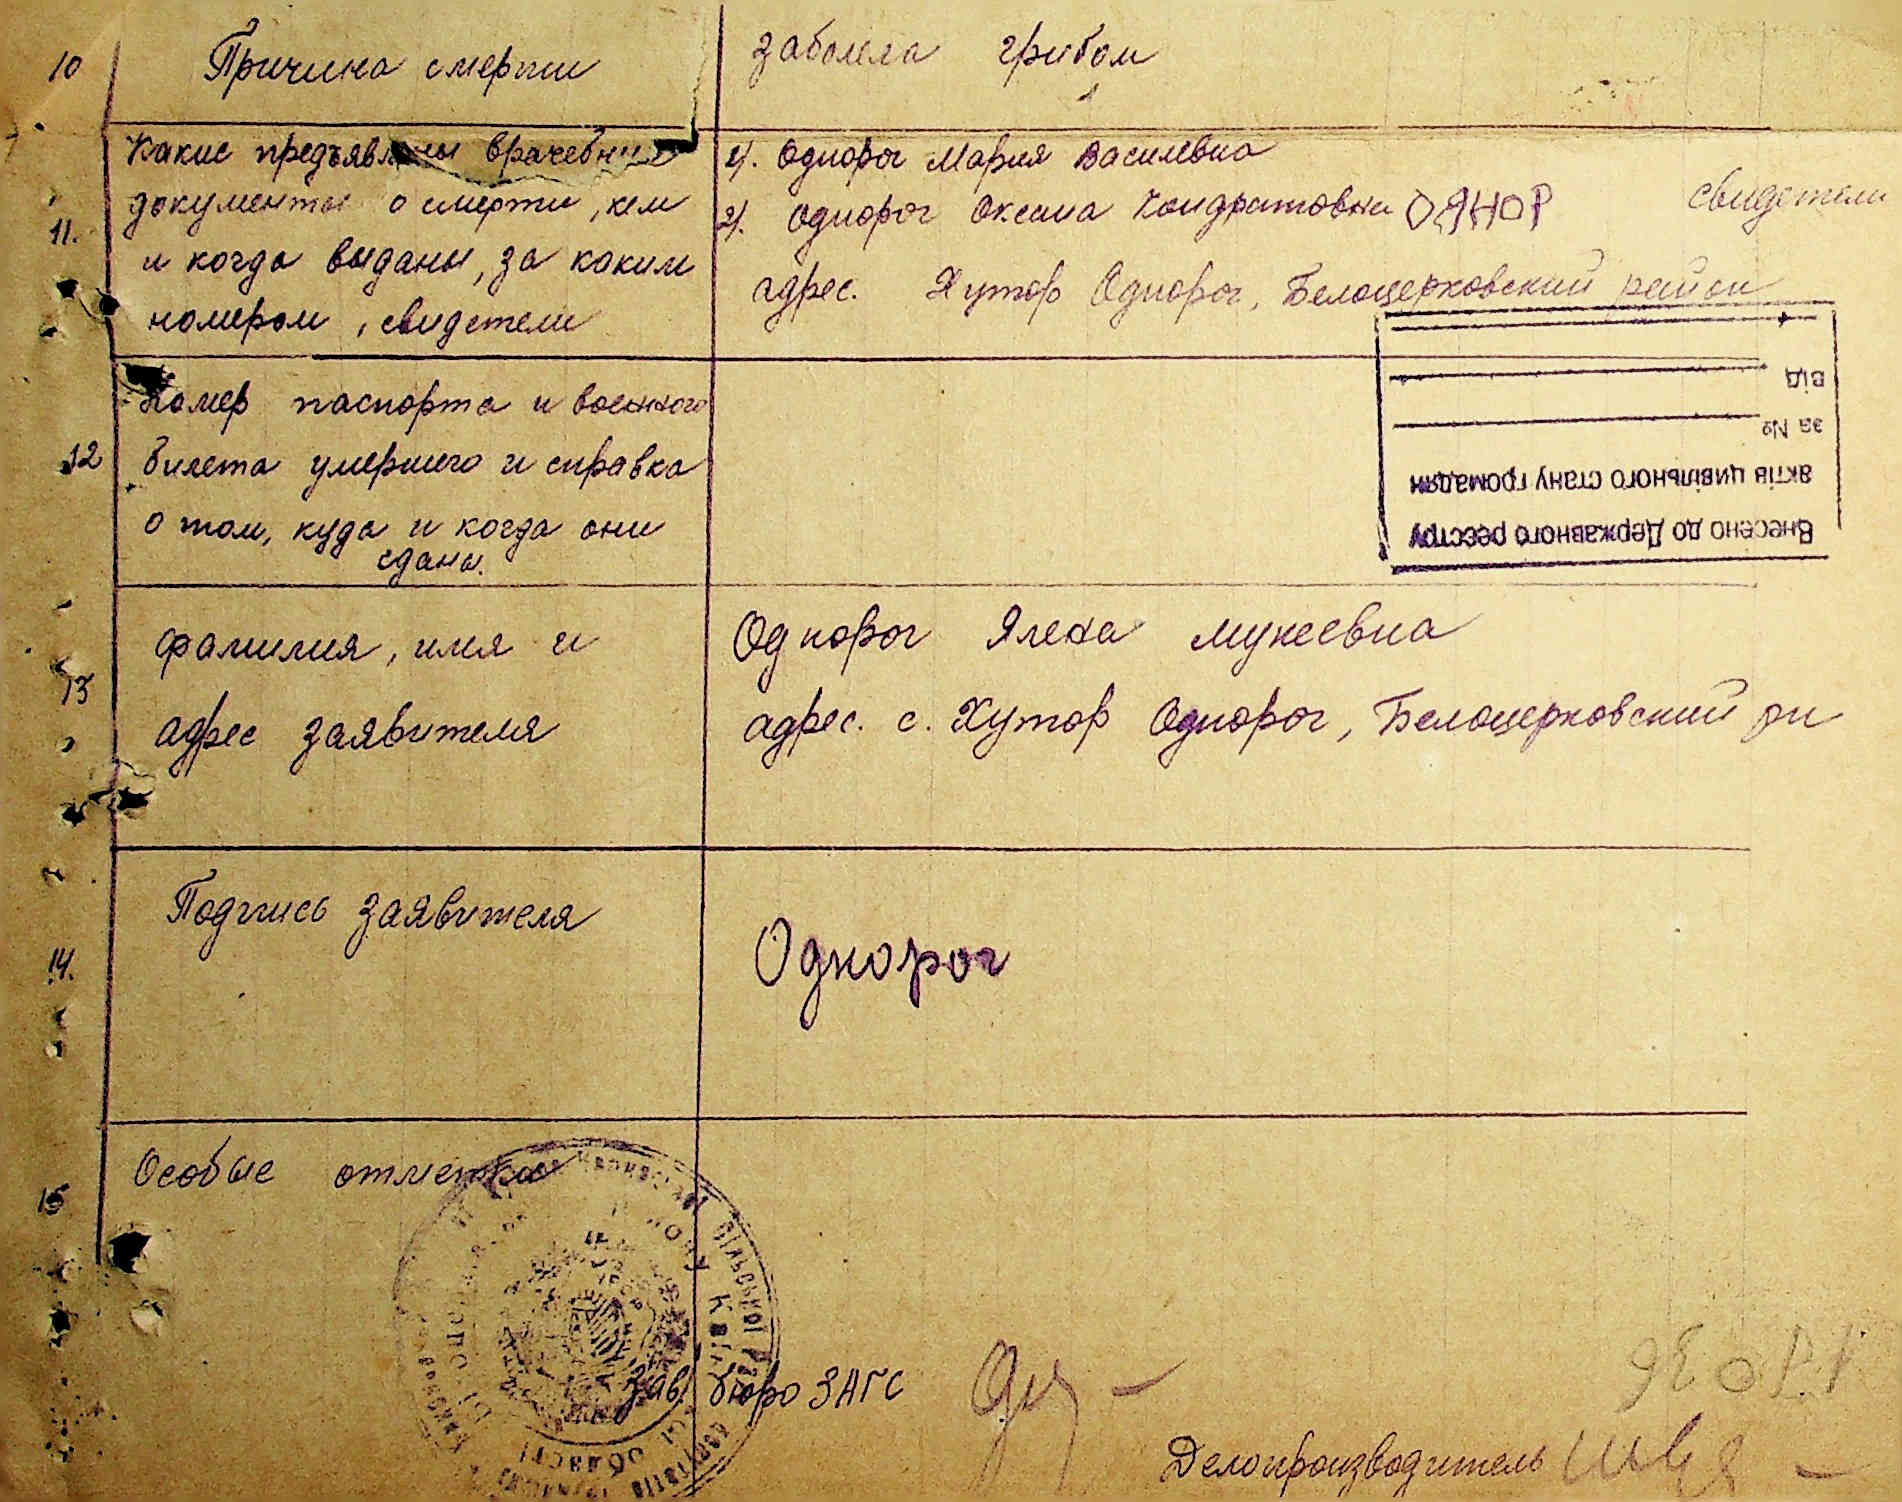 10 Причина смерти заболела грибом
11. Какие предъявлены врачебные
документы о смерти, кем
и когда выданы, за каким
номером, свидетели
1). Однорог Мария Василевна
2). Однорог Оксана Кондратовна ОДНОР свидетели
адрес. Хутор Однорог, Белоцерковский район
12 Номер паспорта и военного
билета умершего и справка
о том, куда и когда они
сданы.
Внесено до Державного реєстру
актів цивільного стану громадян
за №
від
13 фамилия, имя и
адрес заявителя
Однорог Мукеевна
адрес. с. Хутор Однорог, Белоцерковский рн
14. Подпись заявителя
Однорог
15 Особые отметки
Зав. бюро ЗАГС
Делопроизводитель